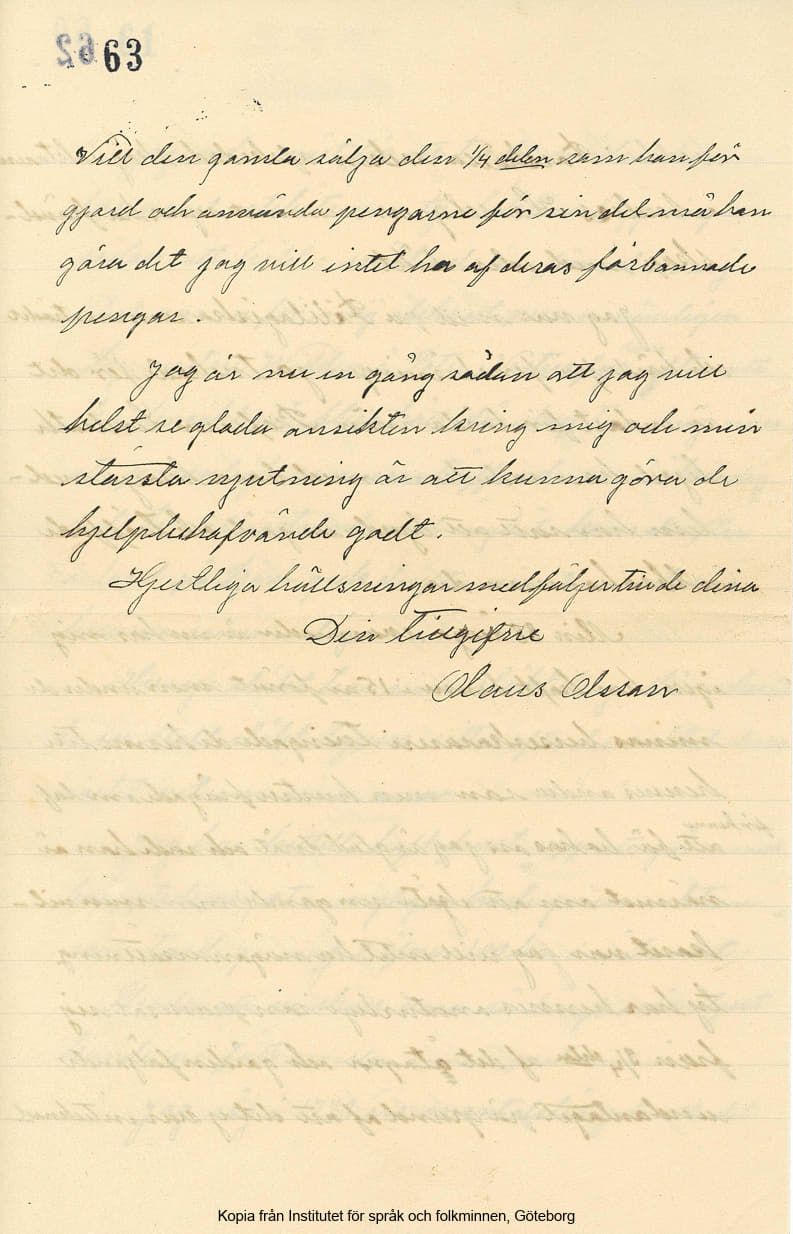 63
Vill den gamla sälja den 1/4 delen som han för
gjord och använda pengarne för sin del må han
göra det jag vill intet ha af deras förbannade
pengar.
Jag är nu en gång sådan att jag vill
helst se glada ansikten kring mig och min
största njutning är att kunna göra de
hjelpbehöfvande godt.
Hjertliga hällsningar medföljer till de dina
Din Tillgifne
Olaus Olsson
Kopia från Institutet för språk och folkminnen, Göteborg